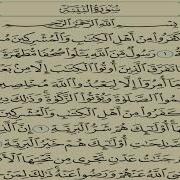 سُورَةُ البَيِّنَة
بِسْمِ اللَّهِ الرَّحْمَٰنِ الرَّحِيمِ
كَفَرُوا۟ مِنْ أَهْلِ ٱلْكِتَٰبِ وَٱلْمُشْرِكِينَ
رَسُولٌ مِّنَ ٱللَّهِ يَتْلُوا۟ صُحُفًا مُّطَهَّرَةً
تَفَرَّقَ ٱلَّذِينَ أُوتُوا۟ ٱلْكِتَٰبَ إِلَّا مِنۢ بَعْدِ
أُمِرُوٓا۟ إِلَّا لِيَعْبُدُوا۟ ٱللَّهَ مُخْلِصِينَ
ٱلصَّلَوٰةَ وَيُؤْتُوا۟ ٱلزَّكَوٰةَ وَذَٰلِكَ
كَفَرُوا۟ مِنْ أَهْلِ ٱلْكِتَٰبِ وَٱلْمُشْرِكِينَ
أُو۟لَٰٓئِكَ هُمْ شَرُّ ٱلْبَرِيَّةِ ٦ إِنَّ
أُو۟لَٰٓئِكَ هُمْ خَيْرُ ٱلْبَرِيَّةِ
جَنَّٰتُ عَدْنٍ تَجْرِى مِن تَحْتِهَا
ٱللَّهُ عَنْهُمْ وَرَضُوا۟ عَنْهُ ذَٰلِكَ